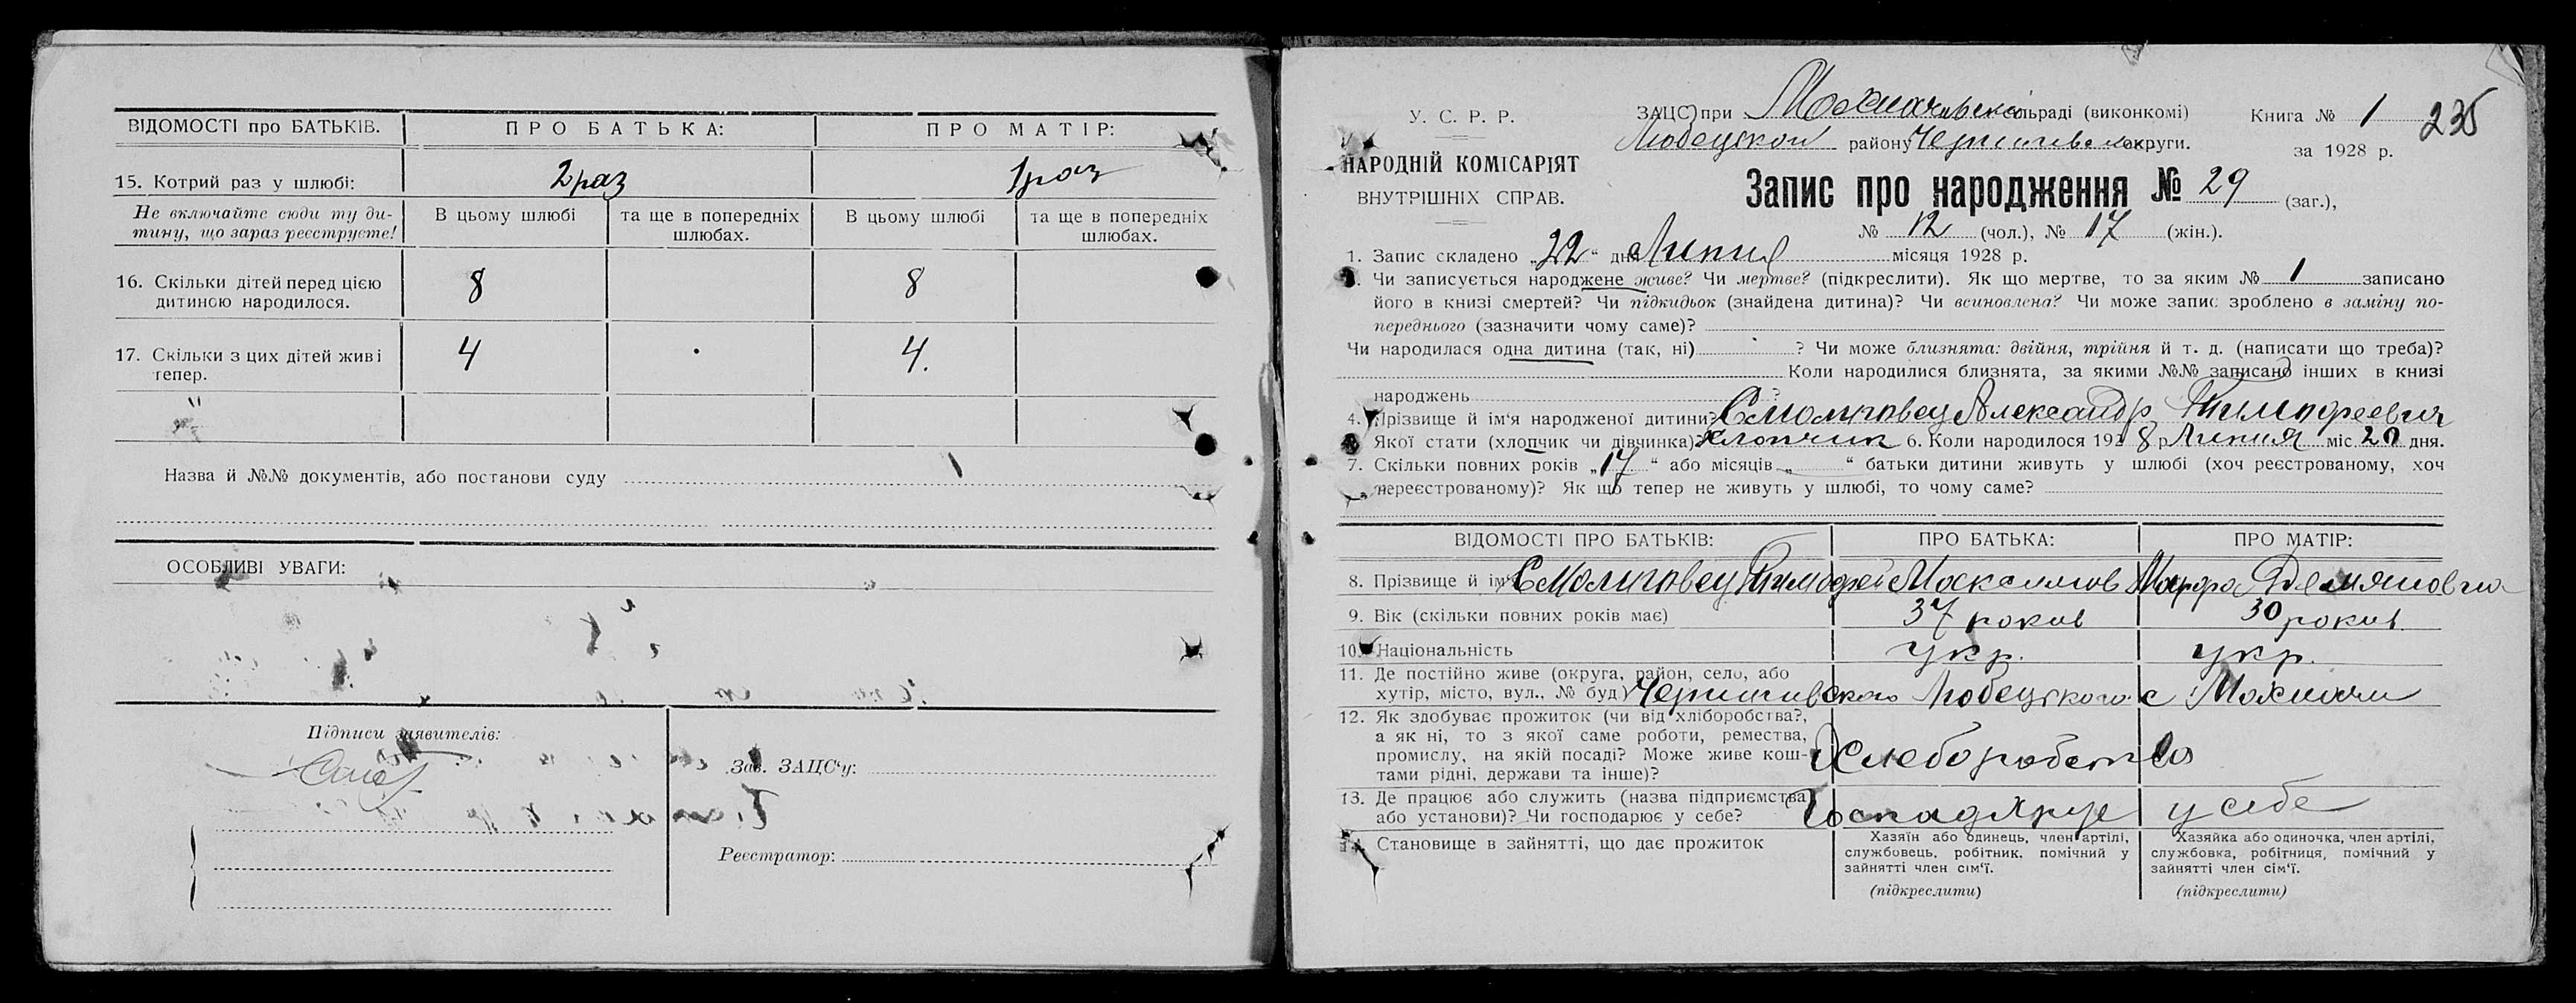 ВІДОМОСТІ про БАТЬКІВ. ПРО БАТЬКА: ПРО МАТІР:
15. Котрий раз у шлюбі: 2 раз 1 раз
Не включайте сюди ту ди-
тину, що зараз реєструєте!
В цьому шлюбі та ще в попередніх шлюбах. В цьому шлюбі та ще в попередніх шлюбах.
16. Скільки дітей перед цією
дитиною народилося. 8 8
17. Скільки з цих дітей живі
тепер. 4 4.
"
Назва й №№ документів, або постанови суду
ОСОБЛИВІ УВАГИ:
Підписи заявителів:
Зав. ЗАЦС'у:
Реєстратор:
У. С. Р. Р.
НАРОДНІЙ КОМІСАРІЯТ
ВНУТРІШНІХ СПРАВ.
ЗАЦС при сільраді (виконкомі) Книга № 1 235
Любецкой району округи. за 1928 р.
Запис про народження № 29 (заг.),
№ 12 (чол.), № 17 (жін.).
1. Запис складено „22“ дня Липня місяця 1928 р.
Чи записується народжене живе? Чи мертве? (підкреслити). Як що мертве, то за яким № 1 записано
його в книзі смертей? Чи підкидьок (знайдена дитина)? Чи всиновлена? Чи може запис зроблено в заміну по-
переднього (зазначити чому саме)?
Чи народилася одна дитина (так, ні) ? Чи може близнята: двійня, трійня й т. д. (написати що треба)?
Коли народилися близнята, за якими №№ записано інших в книзі
народжень ?
4. Прізвище й ім'я народженої дитини? Александр Тимофеевич
Якої стати (хлопчик чи дівчинка) Хлопчик 6. Коли народилося 1928 р Липня міс. 20 дня.
7. Скільки повних років „17“ або місяців „ “ батьки дитини живуть у шлюбі (хоч реєстрованому, хоч
нереєстрованому)? Як що тепер не живуть у шлюбі, то чому саме?
ВІДОМОСТІ ПРО БАТЬКІВ: ПРО БАТЬКА: ПРО МАТІР:
8. Прізвище й ім'я Тимофей
9. Вік (скільки повних років має) 37 роков 30 роков
10. Національність укр. укр.
11. Де постійно живе (округа, район, село, або
хутір, місто, вул., № буд.) Любецкого с Мохначи
12. Як здобуває прожиток (чи від хліборобства?,
а як ні, то з якої саме роботи, ремества,
промислу, на якій посаді? Може живе кош-
тами рідні, держави та інше)? Хлеборобства
13. Де працює або служить (назва підприємства
або установи)? Чи господарює у себе? Господярує у себе
Становище в зайнятті, що дає прожиток
Хазяїн або одинець, член артілі,
службовець, робітник, помічний у
зайнятті член сім'ї.
(підкреслити)
Хазяйка або одиночка, член артілі,
службовка, робітниця, помічний у
зайнятті член сім'ї.
(підкреслити)